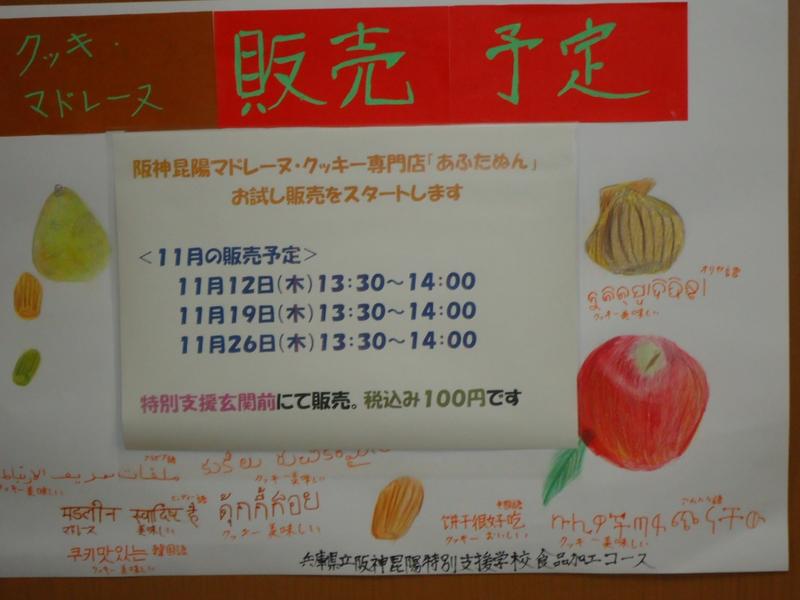 クッキ・
マドレーヌ
販売 予定
阪神昆陽マドレーヌ・クッキー専門店「あふたぬん」
お試し販売をスタートします
<11月の販売予定>
11月12日(木)13:30～14:00
11月19日(木)13:30～14:00
11月26日(木)13:30～14:00
特別支援玄関前にて販売。税込み100円です
クッキー美味しい
クッキー美味しい
クッキー美味しい
मडलीन स्वादिष्ट है
ヒンディー語
美味しい
クッキー美味しい
쿠키맛있는 韓国語
クッキー美味しい
饼干很好吃
中国語
クッキーおいしい
クッキー美味しい
兵庫県立阪神昆陽特別支援学校 食品加工コース